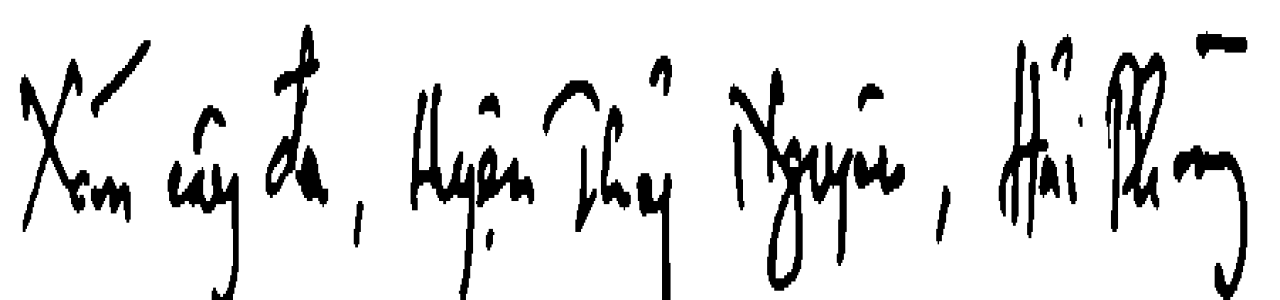 Xóm cây đa, Huyện Thuỷ Nguyên, Hải Phòng